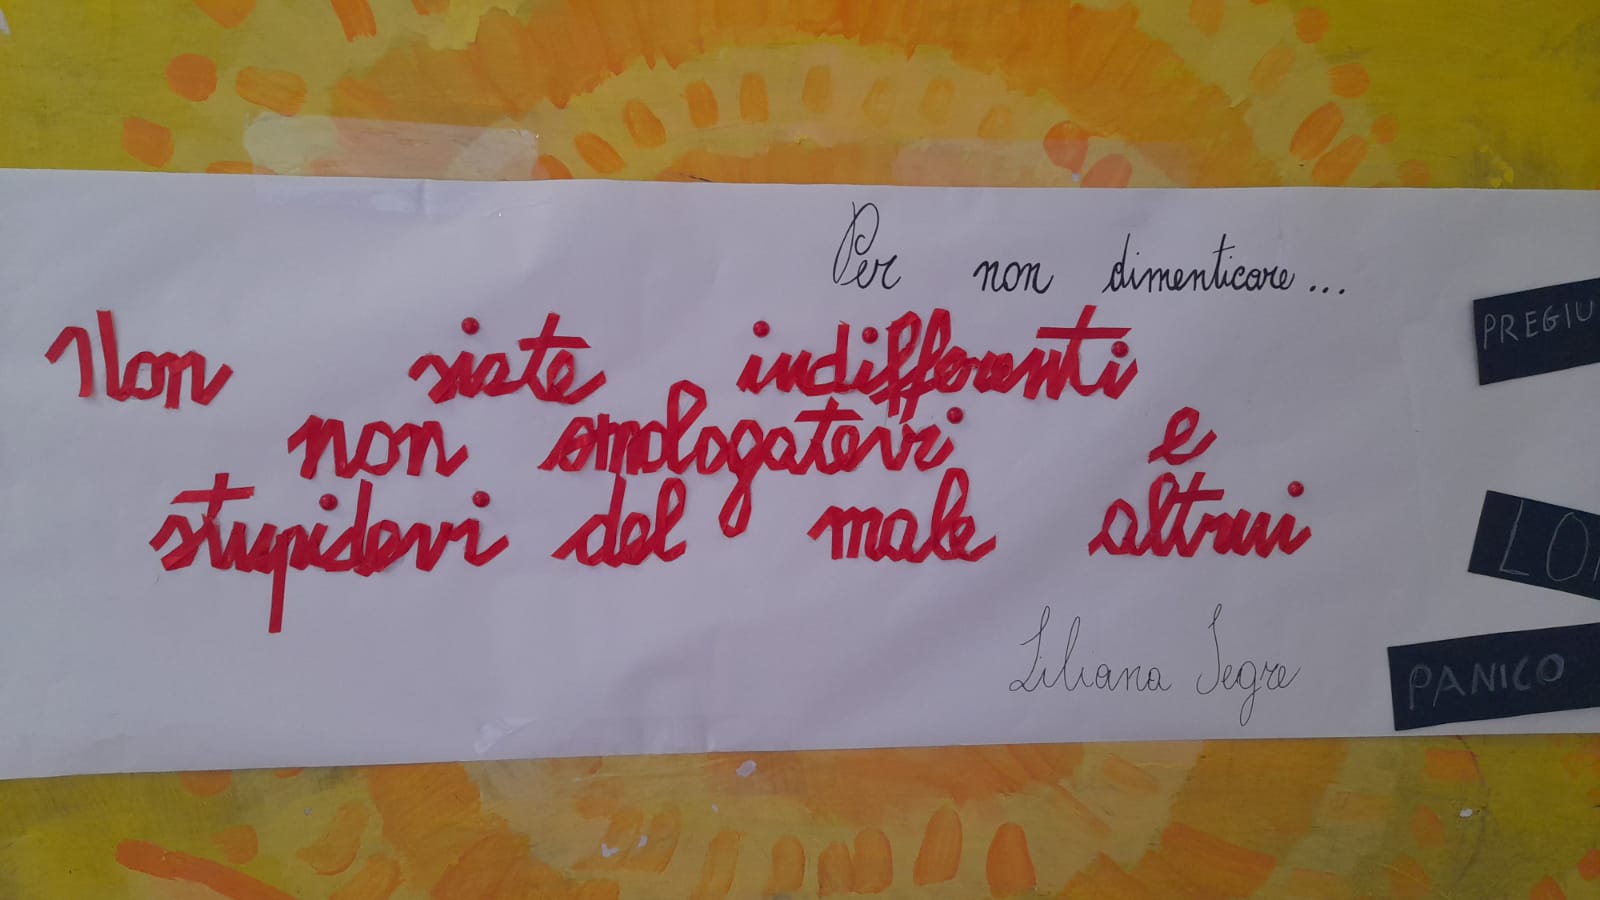 Per non dimenticare...
Non siate indifferenti
non omologatevi e
stupidevi del male altrui
Liliana Segre
PREGIU
LO
PANICO